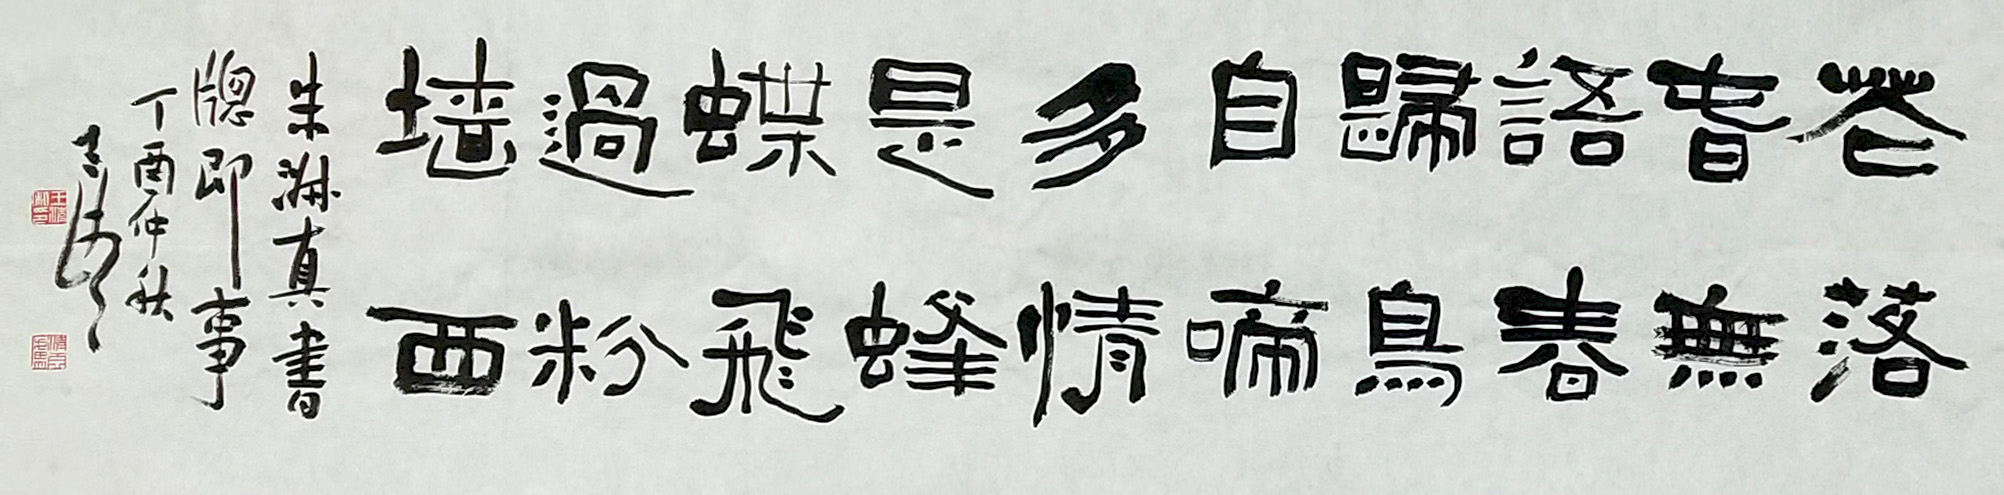 花落
春無
語春
歸鳥
自啼
多情
是蜂
蝶飛
過粉
墙西
朱淑真書
牕即事
丁酉仲秋